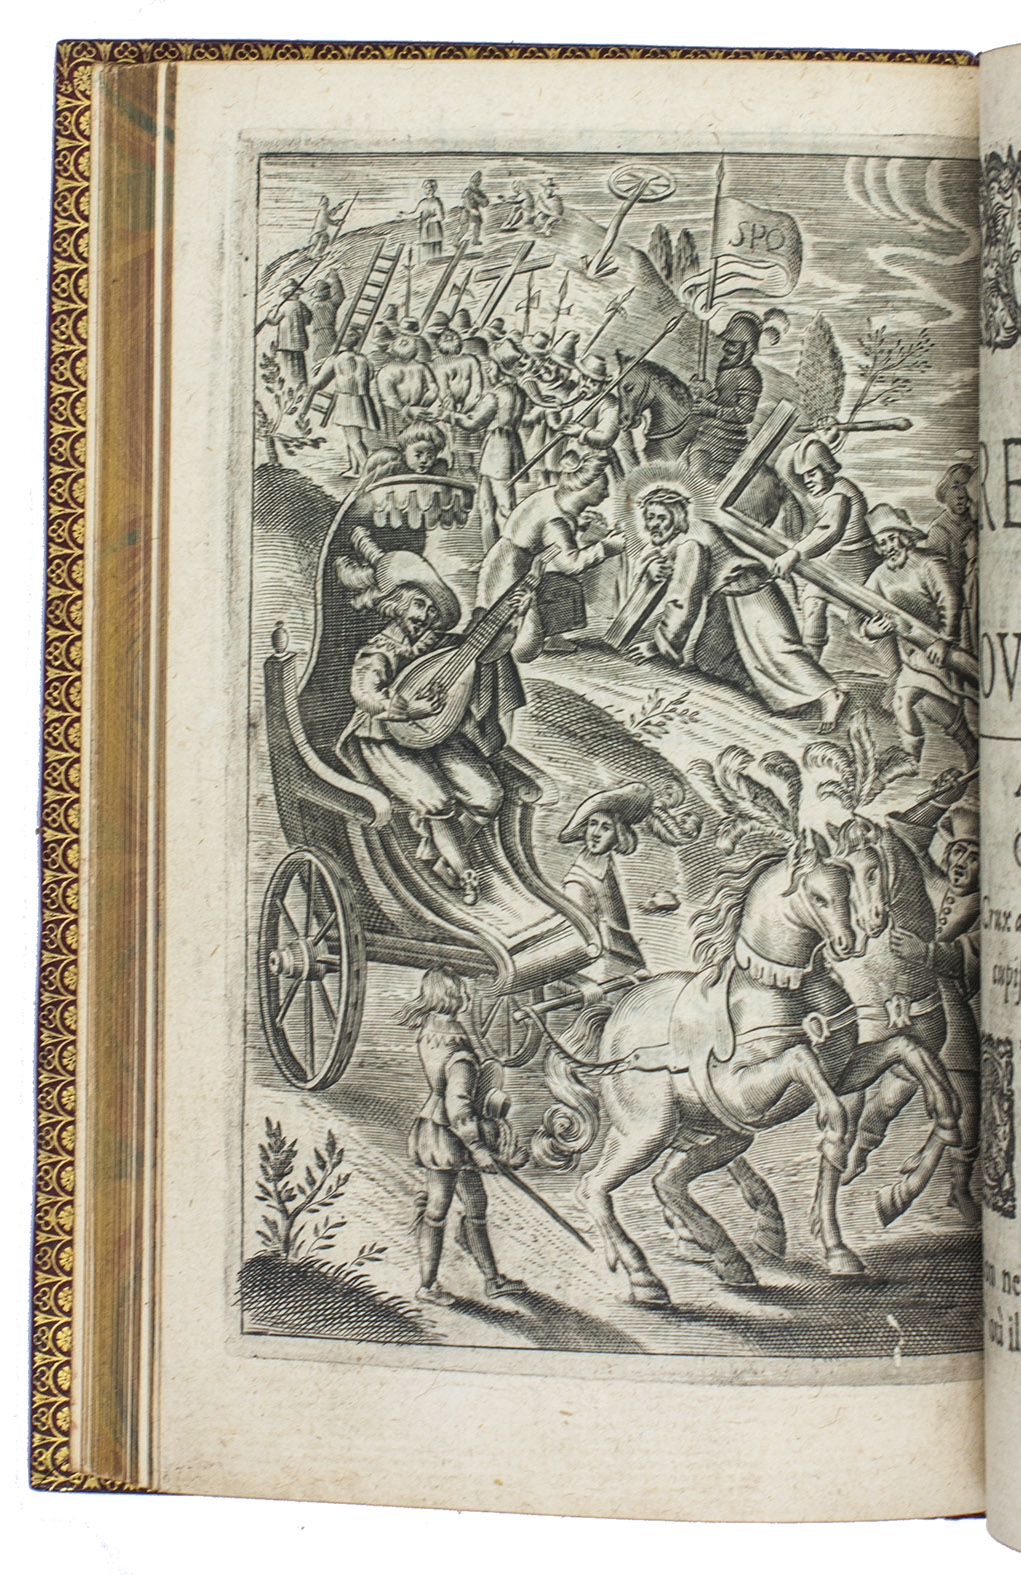 SPQ
RE
OV
A
C
Crux a
capi
on ne
où il